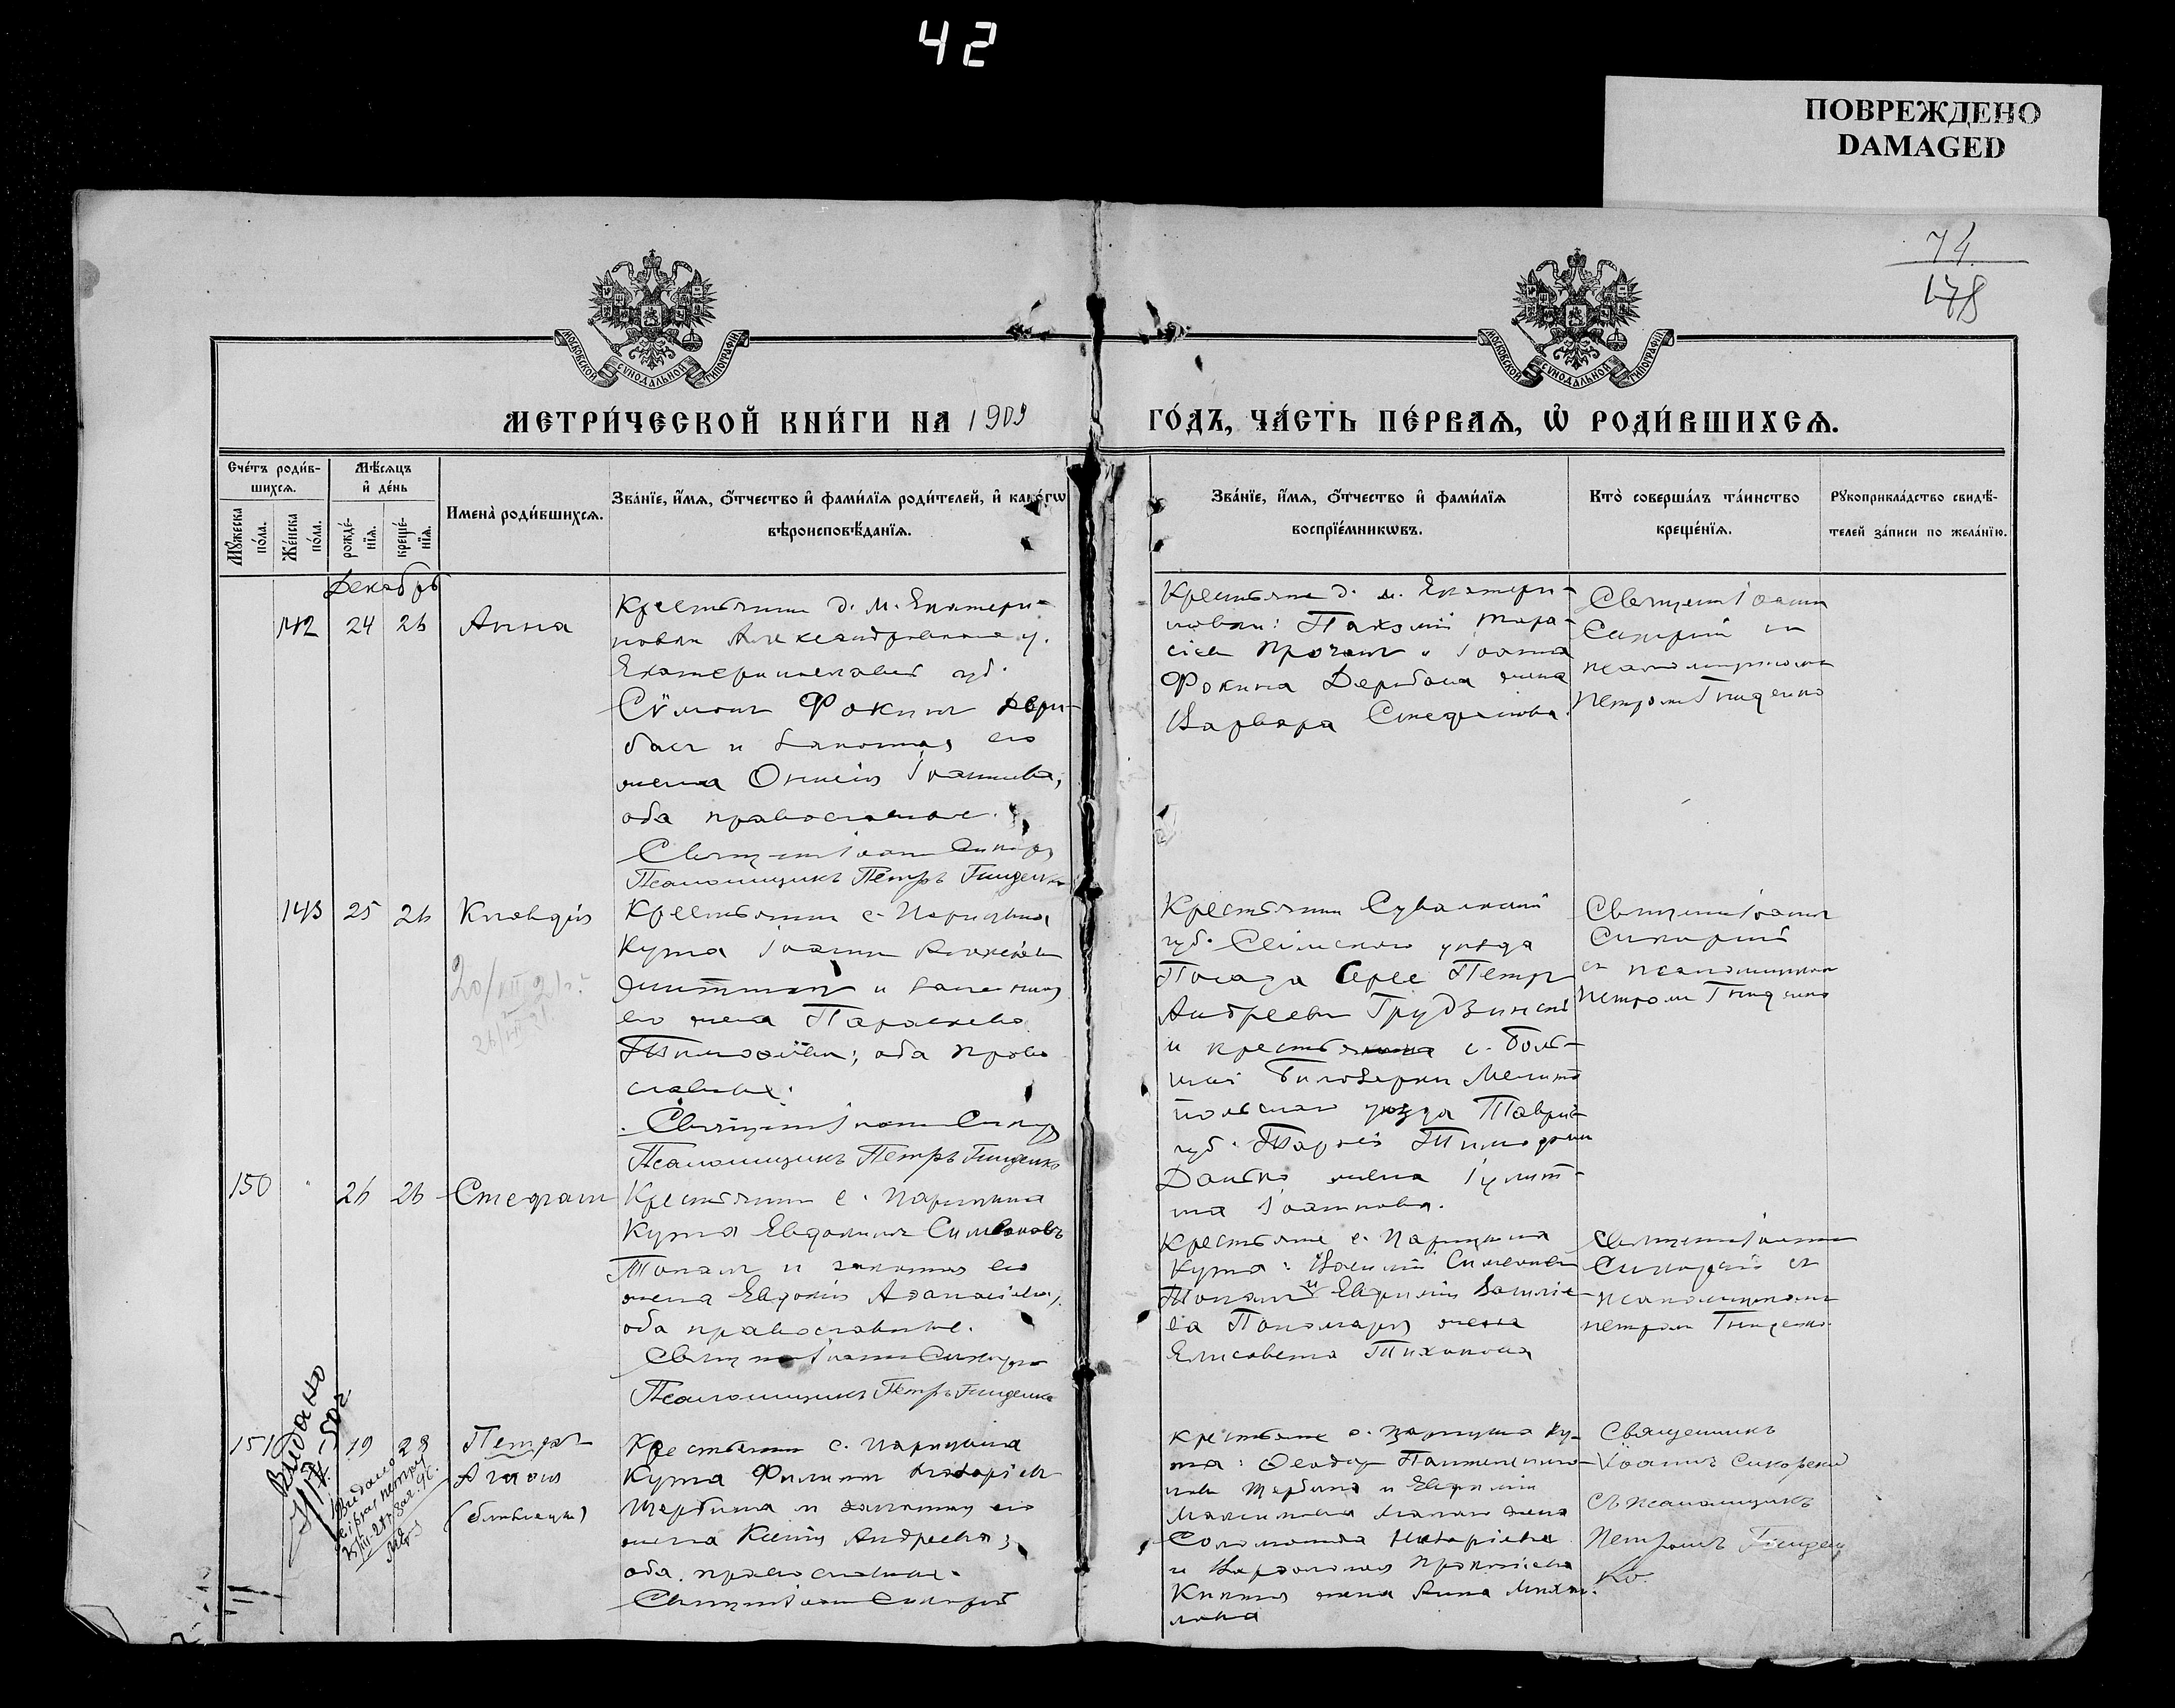 42
ПОВРЕЖДЕНО
DAMAGED
74.
178
МОСКОВСКОЙ СѴНОДАЛЬНОЙ ТИПОГРАФІИ
МОСКОВСКОЙ СѴНОДАЛЬНОЙ ТИПОГРАФІИ
МЕТРИ́ЧЕСКОЙ КНИ́ГИ НА 1909
ГО́ДЪ, ЧА́СТЬ ПЕ́РВАѦ, Ѡ҆ РОДИ́ВШИХСѦ.
Сче́тъ роди́в-
шихсѧ.
Мѣ́сѧцъ
и҆ де́нь
Мꙋ́жеска
по́ла.
Же́нска
по́ла.
рожде́-
нїѧ.
креще́-
нїѧ.
И҆мена̀ роди́вшихсѧ.
Зва́нїе, и҆́мѧ, ѻ҆́тчество и҆ фами́лїѧ роди́телей, и҆ како́гѡ
вѣроисповѣ́данїѧ.
Зва́нїе, и҆́мѧ, ѻ҆́тчество и҆ фами́лїѧ
воспрїе́мникѡвъ.
Кто̀ соверша́лъ та́инство
креще́нїѧ.
Рꙋкоприкла́дство свидѣ́-
телей за́писи по жела́нїю.
Декабрь
142 24 26 Анна
Крестьянин д. М. Екатери-
новки Александровскаго у.
Екатеринославск губ.
Сѵмонъ Фокинъ Дери-
басъ и законная его
жена Ѳнисія Іоаннова,
оба православные.
Псаломщикъ Петръ Гниденко
Крестьяне д. М. Екатери-
новки: Пахомій Тара-
сіев и Іоанна
Фокина Дерибаса жена
Варвара Стефанова.
Священ Іоанн
Сикорскій съ
псаломщикомъ
Петромъ Гниденко
143 25 26 Клавдія
Крестьянин с. Царицына
Кута Іоаннъ Алексіевъ
и законная
его жена Параскева
Тимоѳеева; оба право
славные.
Псаломщикъ Петръ Гниденко
Крестьянин Сувалкской
губ. Сейнскаго уезда
Посада Серее Петръ
Андреевъ Грудзинскій
и крестьянина с. Боль-
шой Білозерки Мелито
польскаго уезда Таврич
губ. Тарасія Тимофеева
Данько жена Іулит-
та Іоаннова.
Священ Іоаннъ
Сикорскій
съ псаломщикомъ
Петромъ Гниденко
150 26 26 Стефанъ
Крестьянин с. Царицына
Кута Евдокимъ Симеоновъ
Топалъ и законная его
жена Евдокія Аѳанасіева,
оба православные.
Псаломщикъ Петръ Гниденко
Крестьяне с. Царицына
Кута: Василій Симеоновъ
Топалъ и Евфимія Василіе-
ва Пономаря жена
Елисавета Тихонова
Священ Іоаннъ
Сикорскій съ
псаломщикомъ
Петромъ Гниденко
151 19 28 Петръ
Агаѳія
(близнецы)
Видано
Крестьянин с. Царицына
Кута Филиппъ Назаріевъ
Щербина и законная его
жена Ксенія Андреева;
оба православные.
Крестьяне с. Царицына Ку-
та: Ѳеодоръ Пантелеимо-
новъ Щербина и Евфимія
жена
Соломонида Назаріева
и Варѳоломея Прокопіева
жена Анна Михай-
лова
Священникъ
Іоаннъ Сикорский
съ псаломщикомъ
Петромъ Гниден
ко.